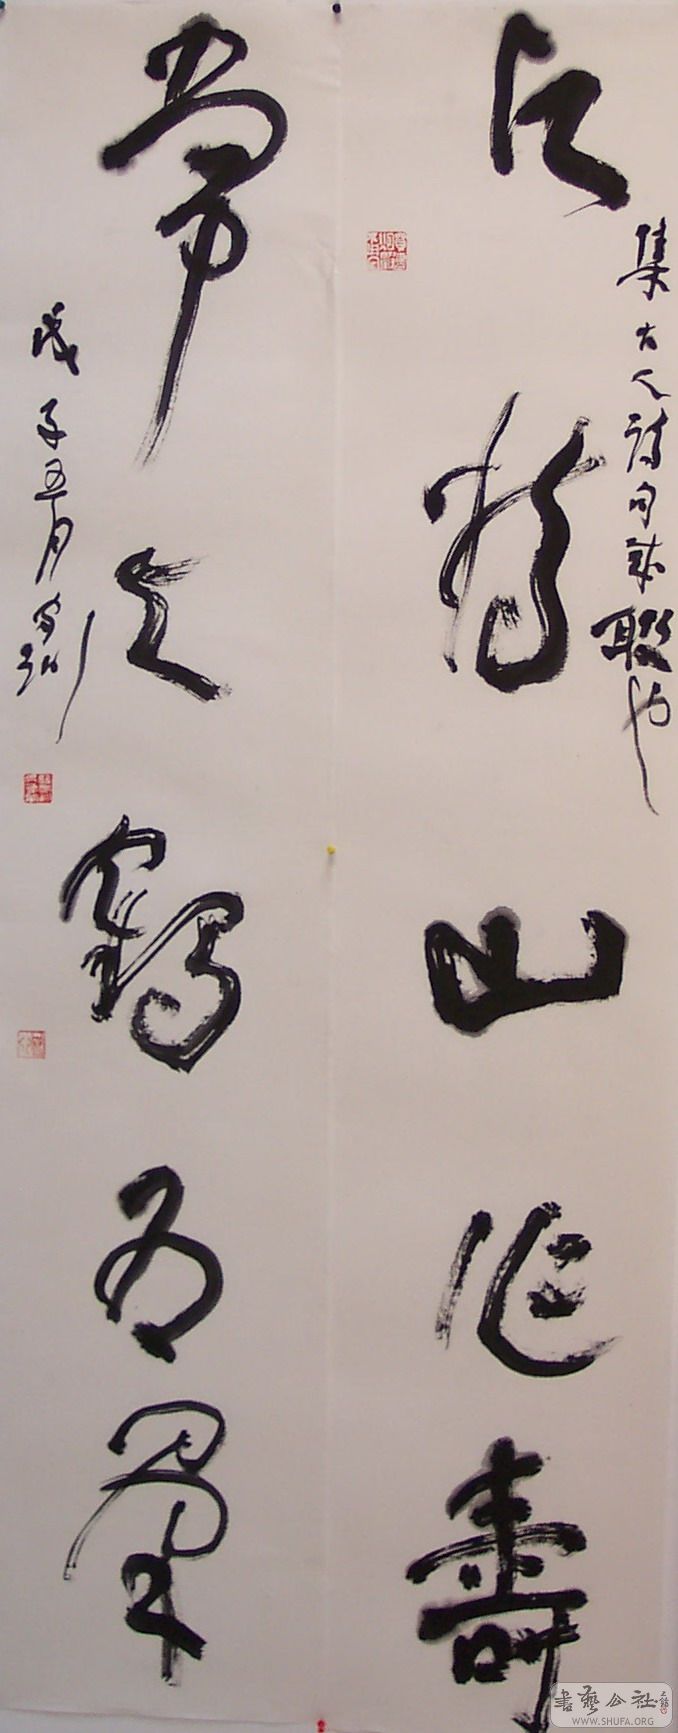 將山作壽
集古人詩句成聯
常與鶴為羣
戊子五月
書藝公社
WWW.SHUFA.ORG